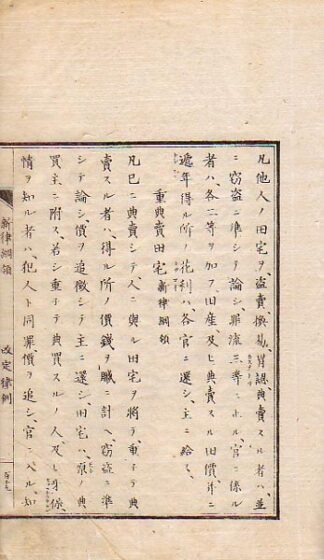 凡他人ノ田宅ヲ盗賣換易冒認典賣スル者ハ並
ニ窃盗ニ準シテ論シ罪流三等ニ止ル官ニ係ル
者ハ各二等ヲ加フ旧産及ヒ典賣スル旧價并ニ
逓年得ル所ノ花利ハ各官ニ還シ主ニ給ス
重典賣田宅 新律綱領
凡已ニ典賣シテ人ニ與ル田宅ヲ将テ重子テ典
賣スル者ハ得ル所ノ價錢ヲ贓ニ計ヘ窃盗ニ準
シテ論シ價ヲ追徴シテ主ニ還シ田宅ハ原ノ典
買主ニ附ス若シ重子テ典買スルノ人及ヒ
情ヲ知ル者ハ犯人ト同罪價ヲ追シ官ニ入ル知
新律綱領 改定律例